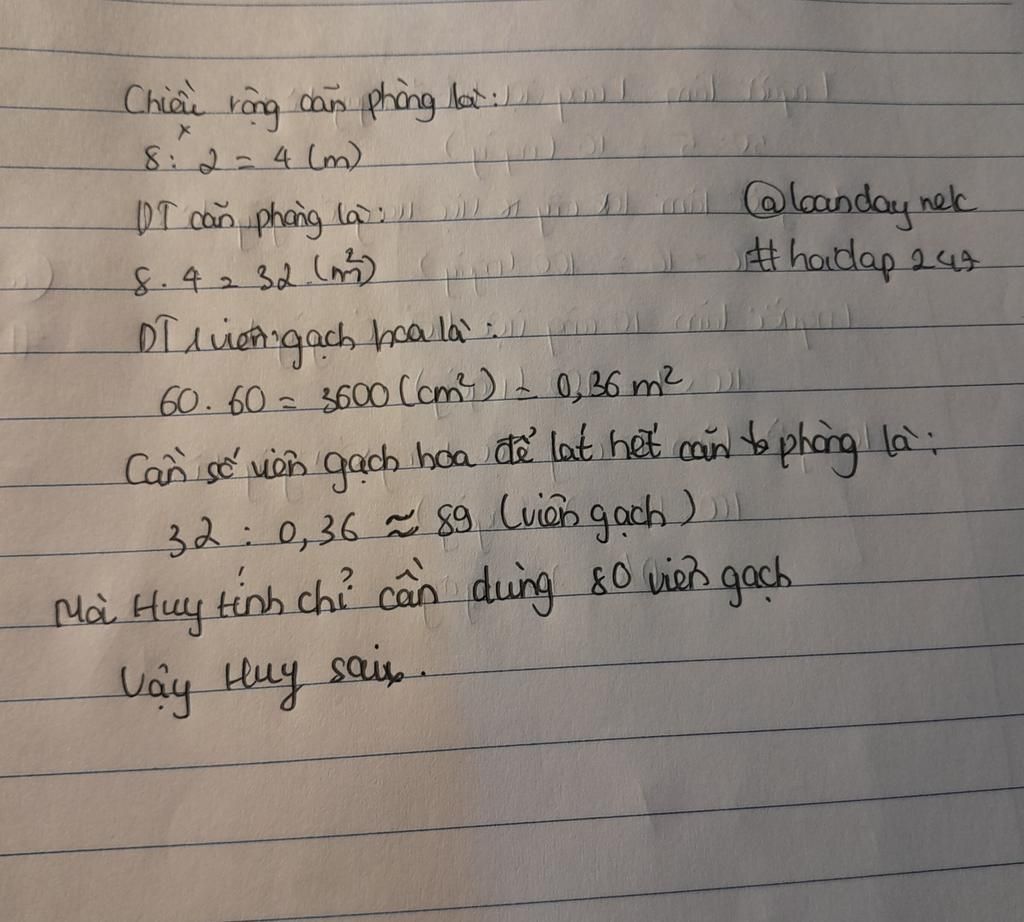 Chiều rộng căn phòng là:
8 : 2 = 4 (m)
DT căn phòng là:
8 . 4 = 32 (m²)
@loandaynek
#hoidap247
DT 1 viên gạch hoa là:
60 . 60 = 3600 (cm²) = 0,36 m²
Cần số viên gạch hoa để lát hết căn phòng là:
32 : 0,36 ≈ 89 (viên gạch)
Mà Huy tính chỉ cần dùng 80 viên gạch
Vậy Huy sai.